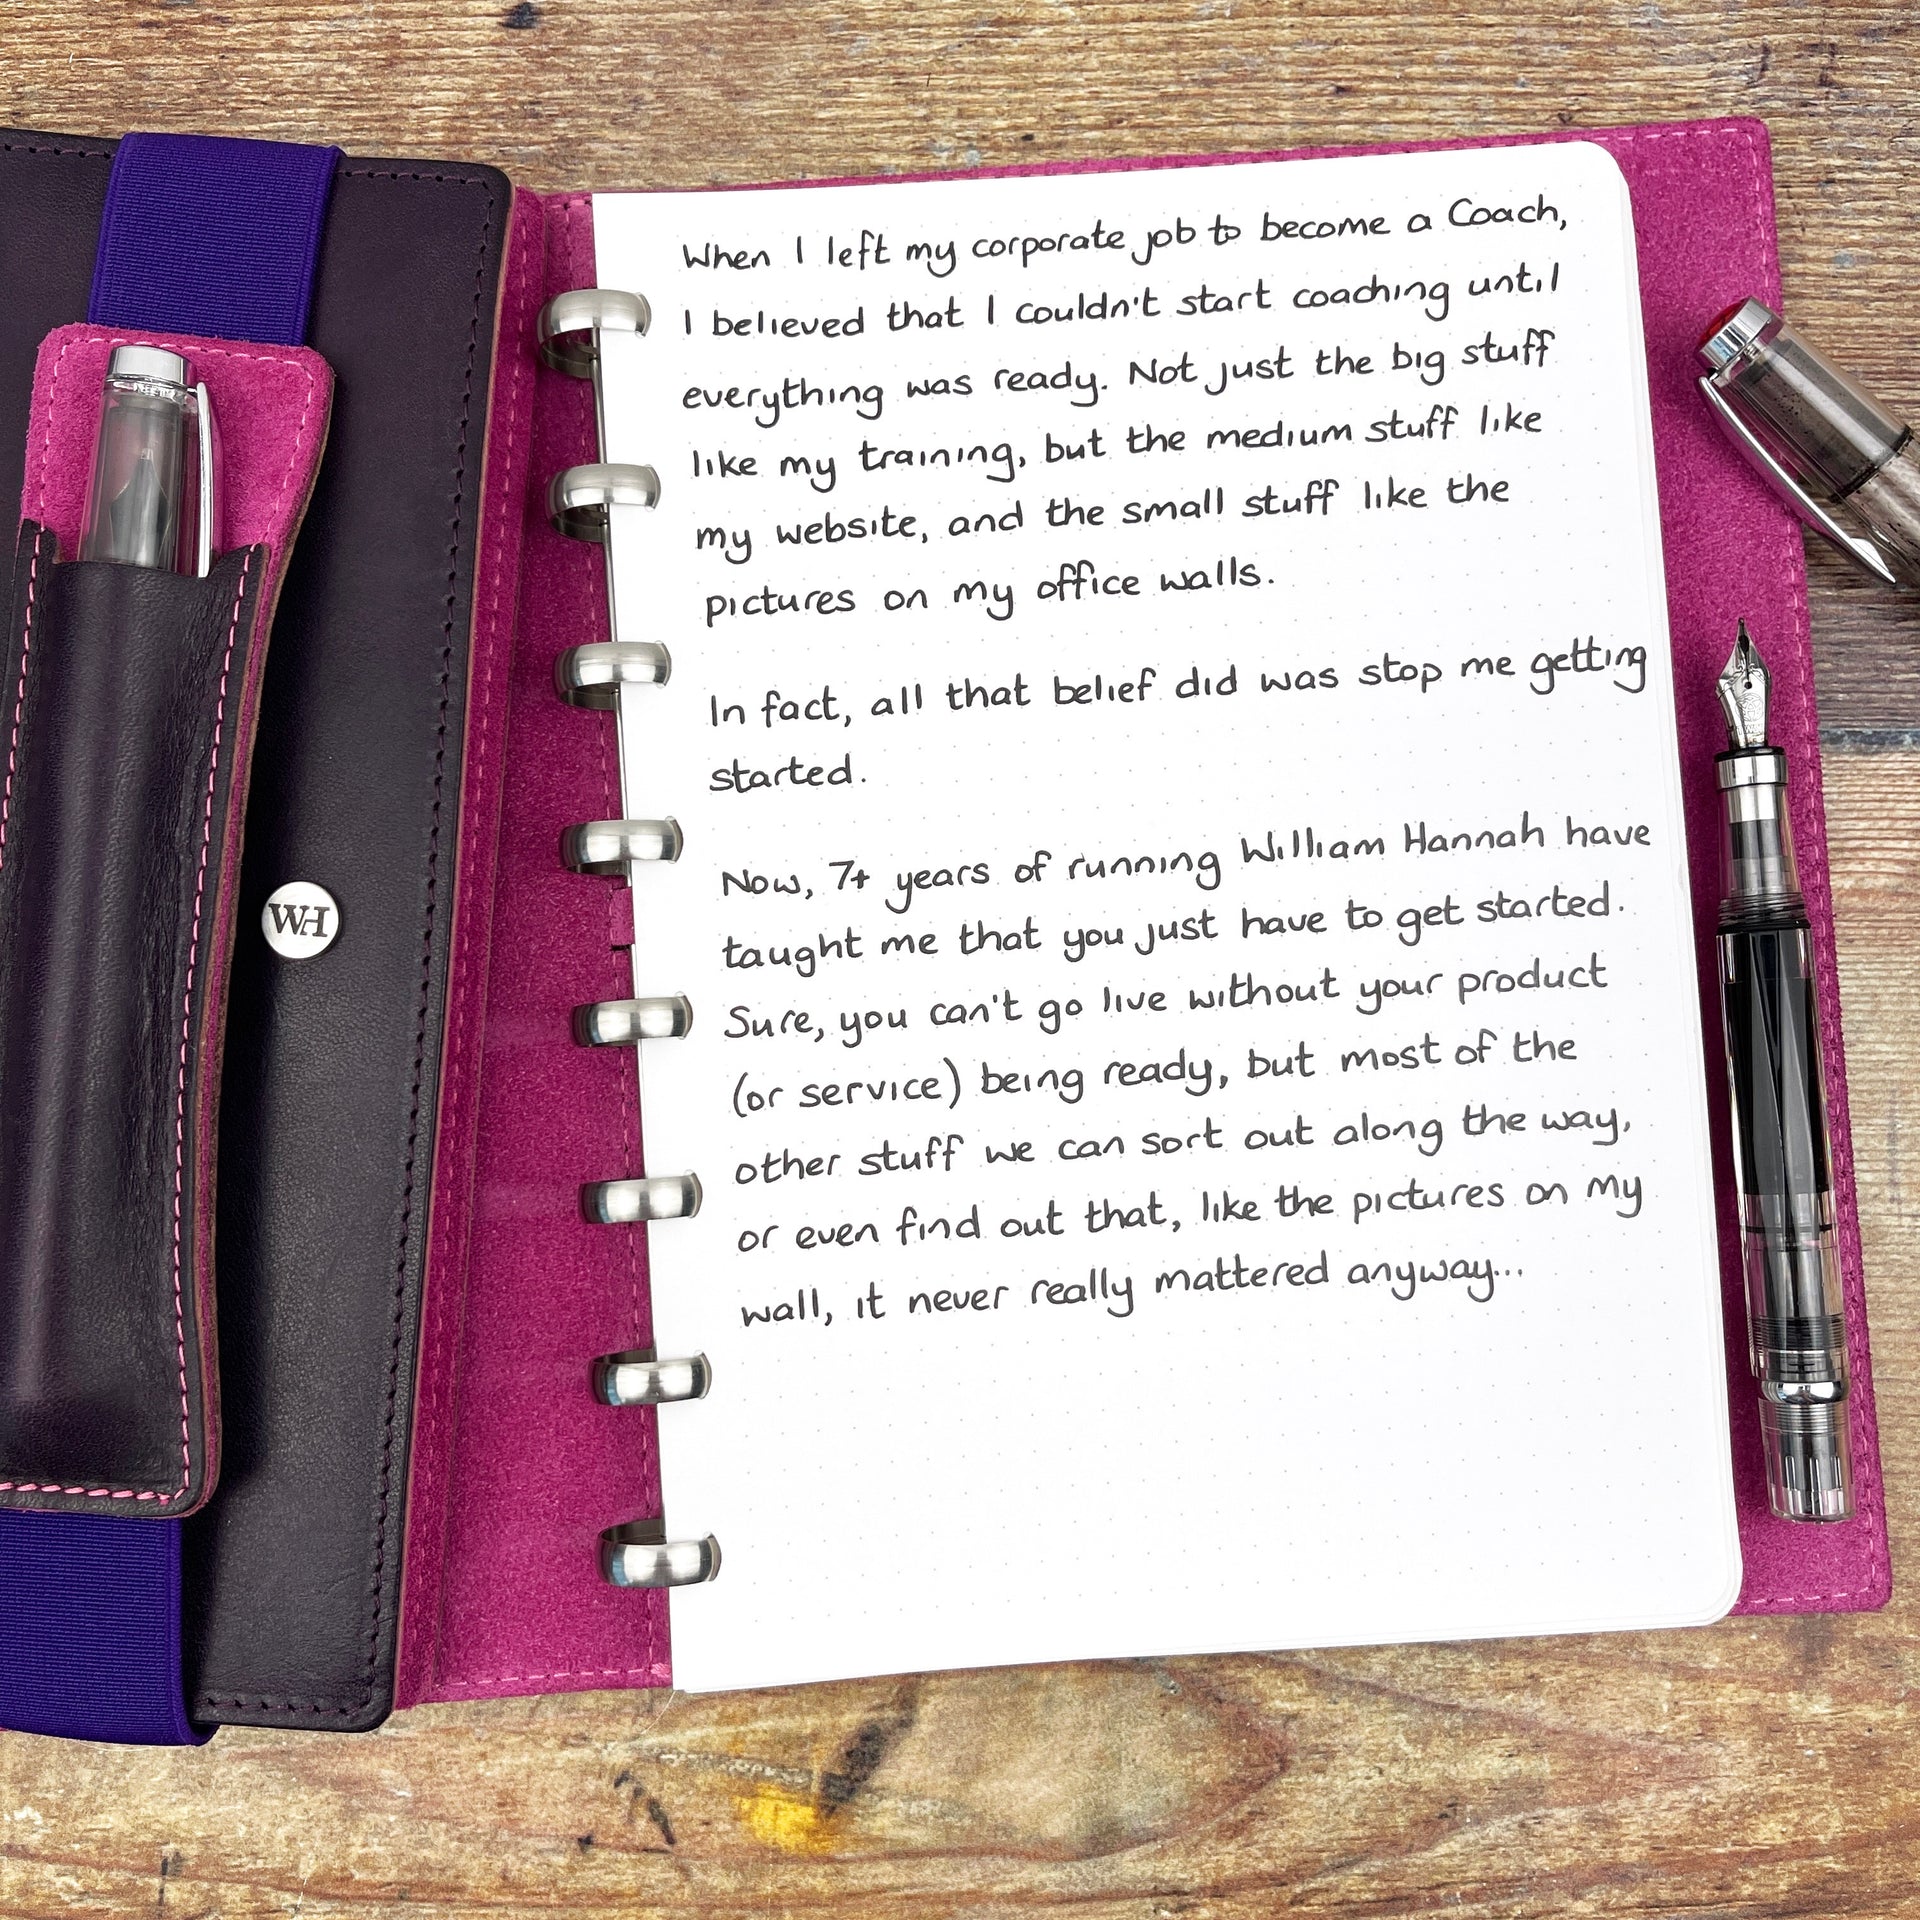 When I left my corporate job to become a Coach,
I believed that I couldn't start coaching until
everything was ready. Not just the big stuff
like my training, but the medium stuff like
my website, and the small stuff like the
pictures on my office walls.
In fact, all that belief did was stop me getting
started.
Now, 7+ years of running William Hannah have
taught me that you just have to get started.
Sure, you can't go live without your product
(or service) being ready, but most of the
other stuff we can sort out along the way,
or even find out that, like the pictures on my
wall, it never really mattered anyway...
WH